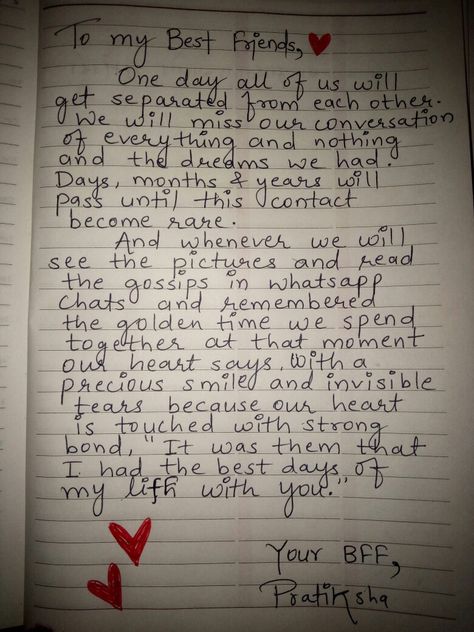 To my Best Friends,
One day all of us will
get separated from each other.
We will miss our conversation
of everything and nothing
and the dreams we had.
Days, months & years will
pass until this contact
become rare.
And whenever we will
see the pictures and read
the gossips in whatsapp
chats and remembered
the golden time we spend
together at that moment
our heart says, with a
precious smile and invisible
tears because our heart
is touched with strong
bond, "It was them that
I had the best days of
my lifh with you."
Your BFF,
Pratiksha